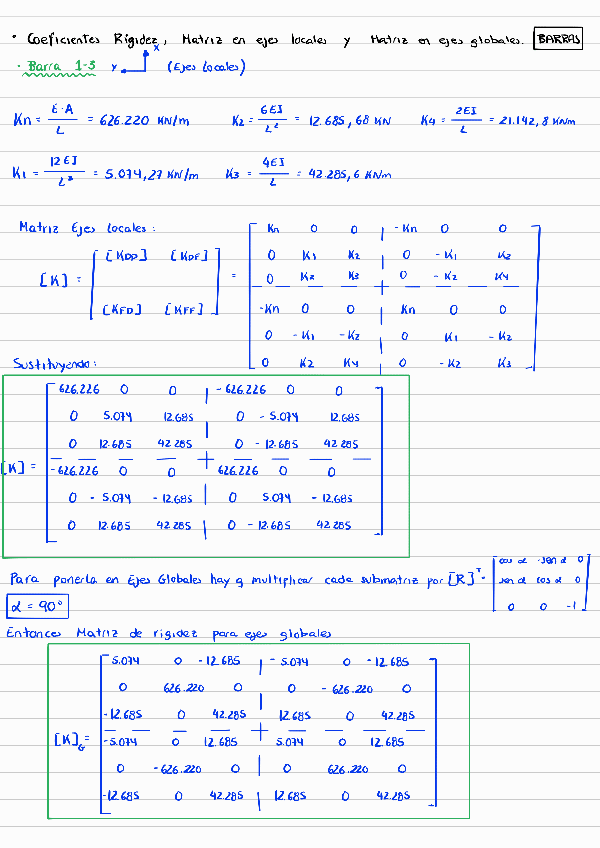 · Coeficientes Rigidez, Matriz en ejes locales y Matriz en ejes globales. BARRAS
· Barra 1-3 Y X (Ejes Locales)
Kn = E·A / L = 626.220 KN/m K2 = 6EI / L² = 12.685,68 KN K4 = 2EI / L = 21.142,8 KNm
K1 = 12EI / L³ = 5.074,27 KN/m K3 = 4EI / L = 42.285,6 KNm
Matriz Ejes Locales:
[K] = [ [KDD] [KDF] [KFD] [KFF] ] =
Kn 0 0 | -Kn 0 0
0 K1 K2 | 0 -K1 K2
0 K2 K3 | 0 -K2 K4
-Kn 0 0 | Kn 0 0
0 -K1 -K2 | 0 K1 -K2
0 K2 K4 | 0 -K2 K3
Sustituyendo:
[K] =
626.226 0 0 | -626.226 0 0
0 5.074 12.685 0 -5.074 12.685
0 12.685 42.285 | 0 -12.685 42.285
-626.226 0 0 626.226 0 0
0 -5.074 -12.685 | 0 5.074 -12.685
0 12.685 42.285 | 0 -12.685 42.285
Para ponerla en Ejes Globales hay q multiplicar cada submatriz por [R]ᵀ·
cos α -sen α 0
sen α cos α 0
0 0 -1
α = 90°
Entonces Matriz de rigidez para ejes globales
[K]G =
5.074 0 -12.685 | -5.074 0 -12.685
0 626.220 0 | 0 -626.220 0
-12.685 0 42.285 | 12.685 0 42.285
-5.074 0 12.685 5.074 0 12.685
0 -626.220 0 | 0 626.220 0
-12.685 0 42.285 | 12.685 0 42.285